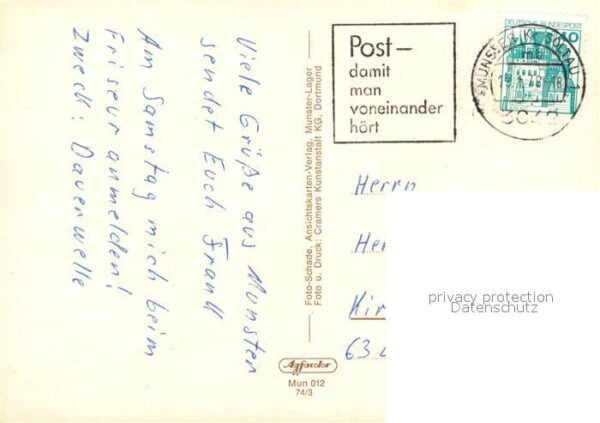 Viele Grüße aus Munster
sendet Euch Frandl
Am Samstag mich beim
Friseur anmelden!
Zweck: Dauerwelle
Foto-Schade, Ansichtskarten-Verlag, Munster-Lager
Foto u. Druck: Cramers Kunstanstalt KG, Dortmund
Agfacolor
Mun 012
74/3
Post –
damit
man
voneinander
hört
DEUTSCHE BUNDESPOST
MUNSTER, KR SOLTAU 1
Herrn
Her
Kir
63
privacy protection
Datenschutz